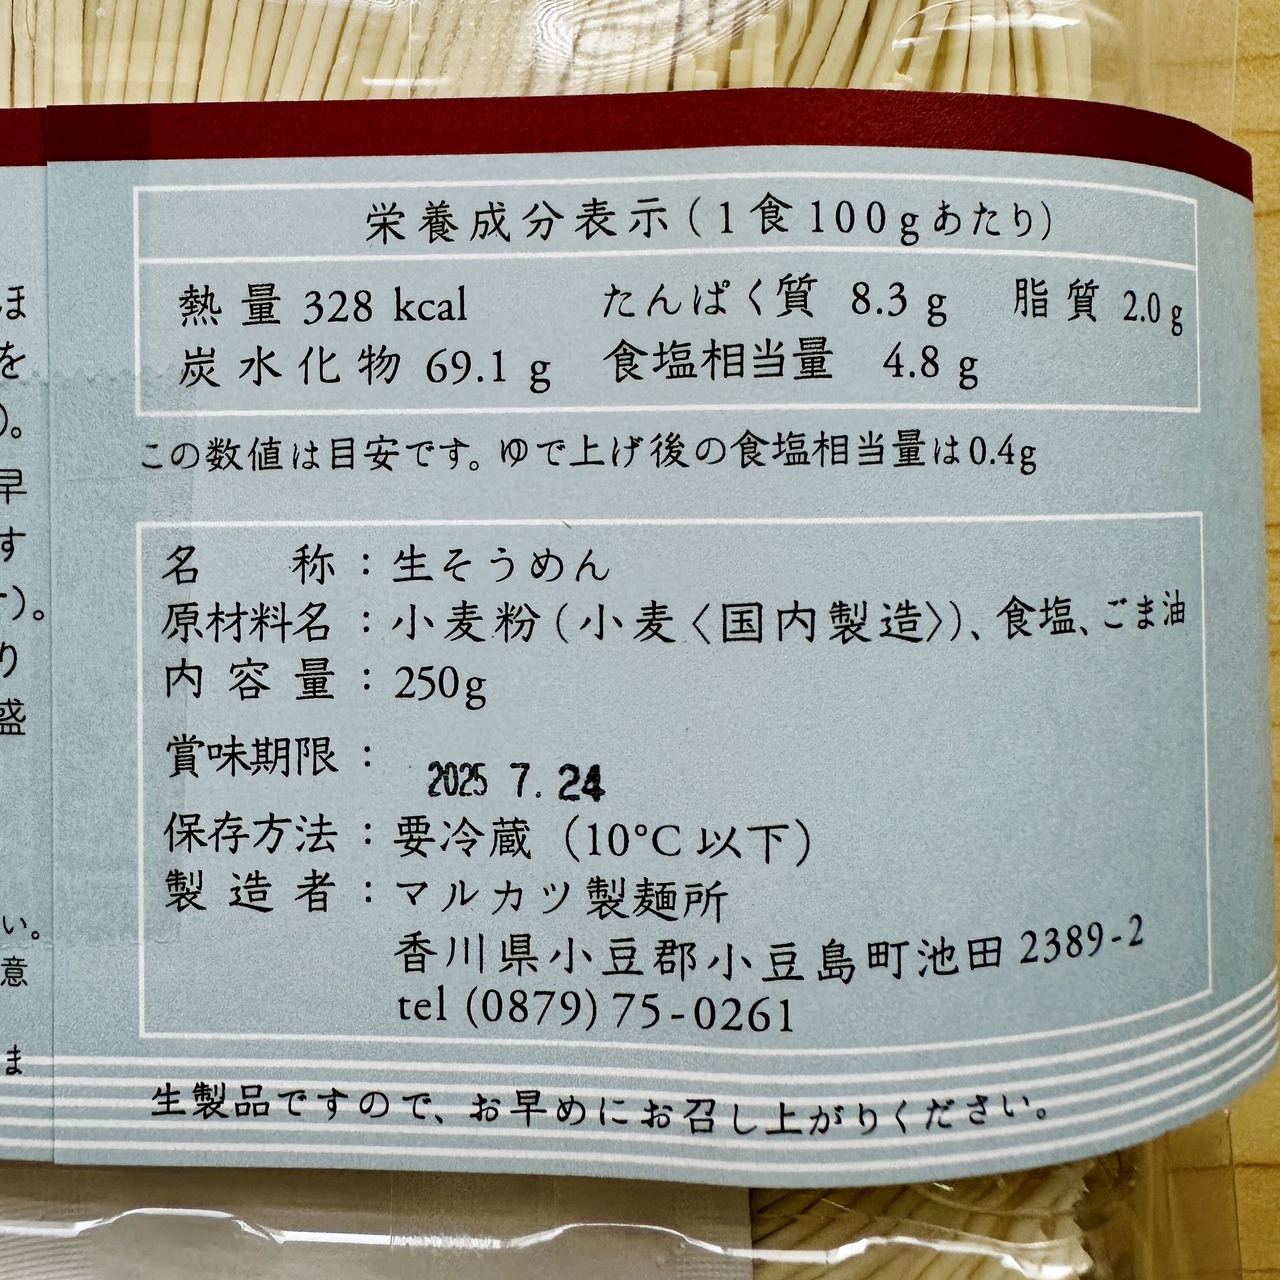 栄養成分表示(1食100gあたり)
熱量 328 kcal たんぱく質 8.3 g 脂質 2.0 g
炭水化物 69.1 g 食塩相当量 4.8 g
この数値は目安です。ゆで上げ後の食塩相当量は0.4g
名称:生そうめん
原材料名:小麦粉(小麦〈国内製造〉)、食塩、ごま油
内容量:250g
賞味期限:
2025 7. 24
保存方法:要冷蔵(10℃以下)
製造者:マルカツ製麺所
香川県小豆郡小豆島町池田 2389-2
tel (0879) 75-0261
生製品ですので、お早めにお召し上がりください。
ほ
を
)。
早
す
)。
り
盛
い。
意
ま